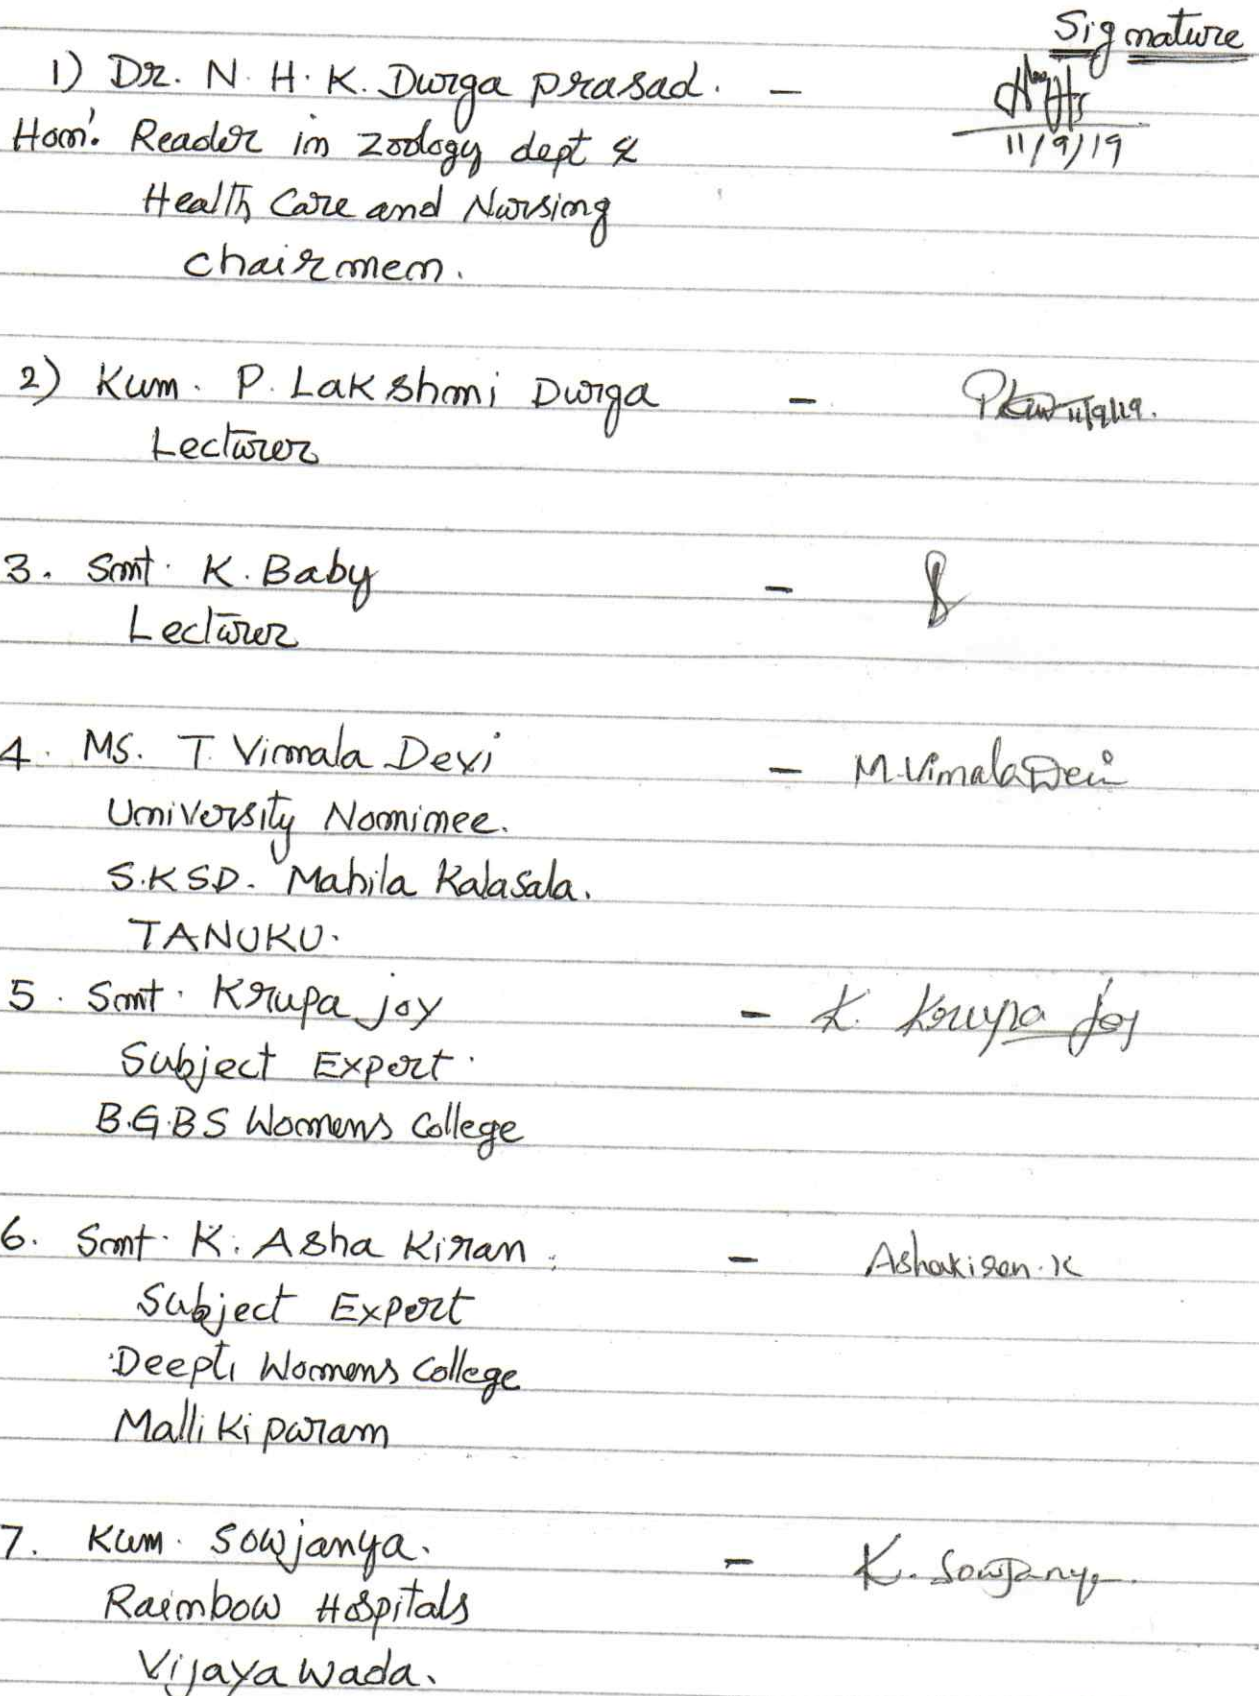 Signature
1) Dr. N. H. K. Durga prasad. -
11/9/19
Hon'. Reader in Zoology dept &
Health Care and Nursing
chairmen.
2) Kum. P. Lakshmi Durga - 11/9/19.
Lecturer
3. Smt. K. Baby -
Lecturer
4. MS. T. Vimala Devi - M. Vimala Devi
University Nominee.
S.K S.D. Mahila Kalasala.
TANUKU.
5. Smt. Krupa joy - K. Krupa Joy
Subject Expert.
B.G.B S Womens College
6. Smt. K. Asha Kiran. - Ashakiran. K
Subject Expert
Deepti Womens College
Malli Ki param
7. Kum. Sowjanya. - K. Sowjanya.
Rainbow Hospitals
Vijaya wada.